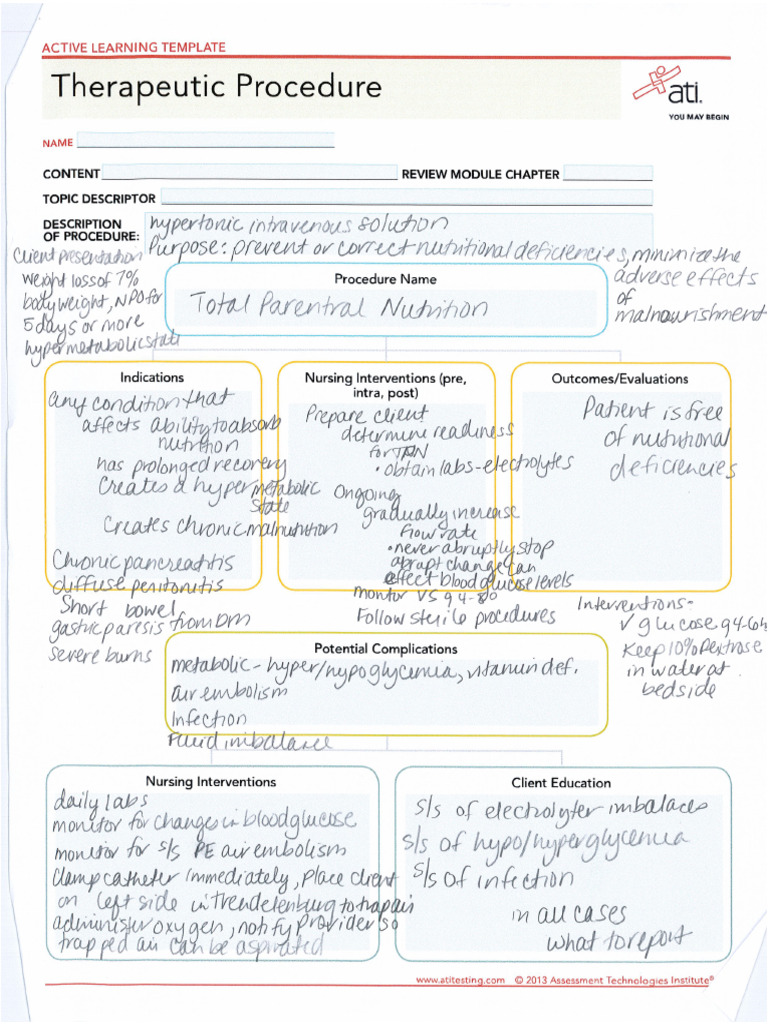 ACTIVE LEARNING TEMPLATE
Therapeutic Procedure
ati.
YOU MAY BEGIN
NAME
CONTENT
REVIEW MODULE CHAPTER
TOPIC DESCRIPTOR
DESCRIPTION
OF PROCEDURE:
hypertonic intravenous solution
Purpose: prevent or correct nutritional deficiencies, minimize the
adverse effects
of
malnourishment
Client presentation
weight loss of 7%
body weight, NPO for
5 days or more
hypermetabolic state
Procedure Name
Total Parentral Nutrition
Indications
any condition that
affects ability to absorb
nutrition
has prolonged recovery
Creates a hypermetabolic
state
Creates chronic malnutrition
Chronic pancreatitis
diffuse peritonitis
Short bowel
gastric paresis from DM
severe burns
Nursing Interventions (pre,
intra, post)
Prepare client
determine readiness
for TPN
• obtain labs - electrolytes
Ongoing
gradually increase
flow rate
• never abruptly stop
abrupt change can
effect blood glucose levels
monitor VS q 4-8°
Follow sterile procedures
Outcomes/Evaluations
Patient is free
of nutritional
deficiencies
Interventions -
√ glucose q4-6h
Keep 10% Dextrose
in water at
bedside
Potential Complications
metabolic - hyper/hypoglycemia, vitamin def.
air embolism
Infection
Fluid imbalance
Nursing Interventions
daily labs
monitor for changes in blood glucose
monitor for s/s PE air embolism
Clamp catheter immediately, place client
on left side in Trendelenburg to trap air
administer oxygen, notify provider so
trapped air can be aspirated
Client Education
s/s of electrolyter imbalaces
s/s of hypo/hyperglycemia
s/s of infection
in all cases
what to report
www.atitesting.com © 2013 Assessment Technologies Institute®